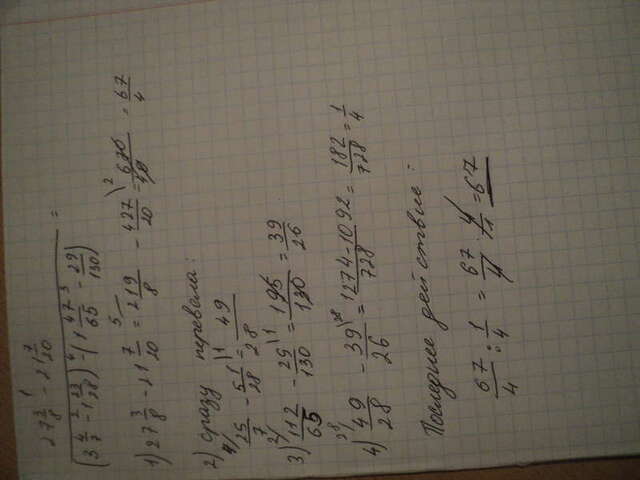 27 3/8 - 21 7/20
(3 4/7 - 1 23/28) - (1 47/65 - 29/130) =
1) 27 3/8 - 21 7/20 = 219/8 - 427/20 = 670/40 = 67/4
2) сразу перевела:
25/7 - 51/28 = 49/28
3) 112/65 - 29/130 = 195/130 = 39/26
4) 49/28 - 39/26 = 1274-1092/728 = 182/728 = 1/4
Последнее действие:
67/4 : 1/4 = 67/4 · 4/1 = 67